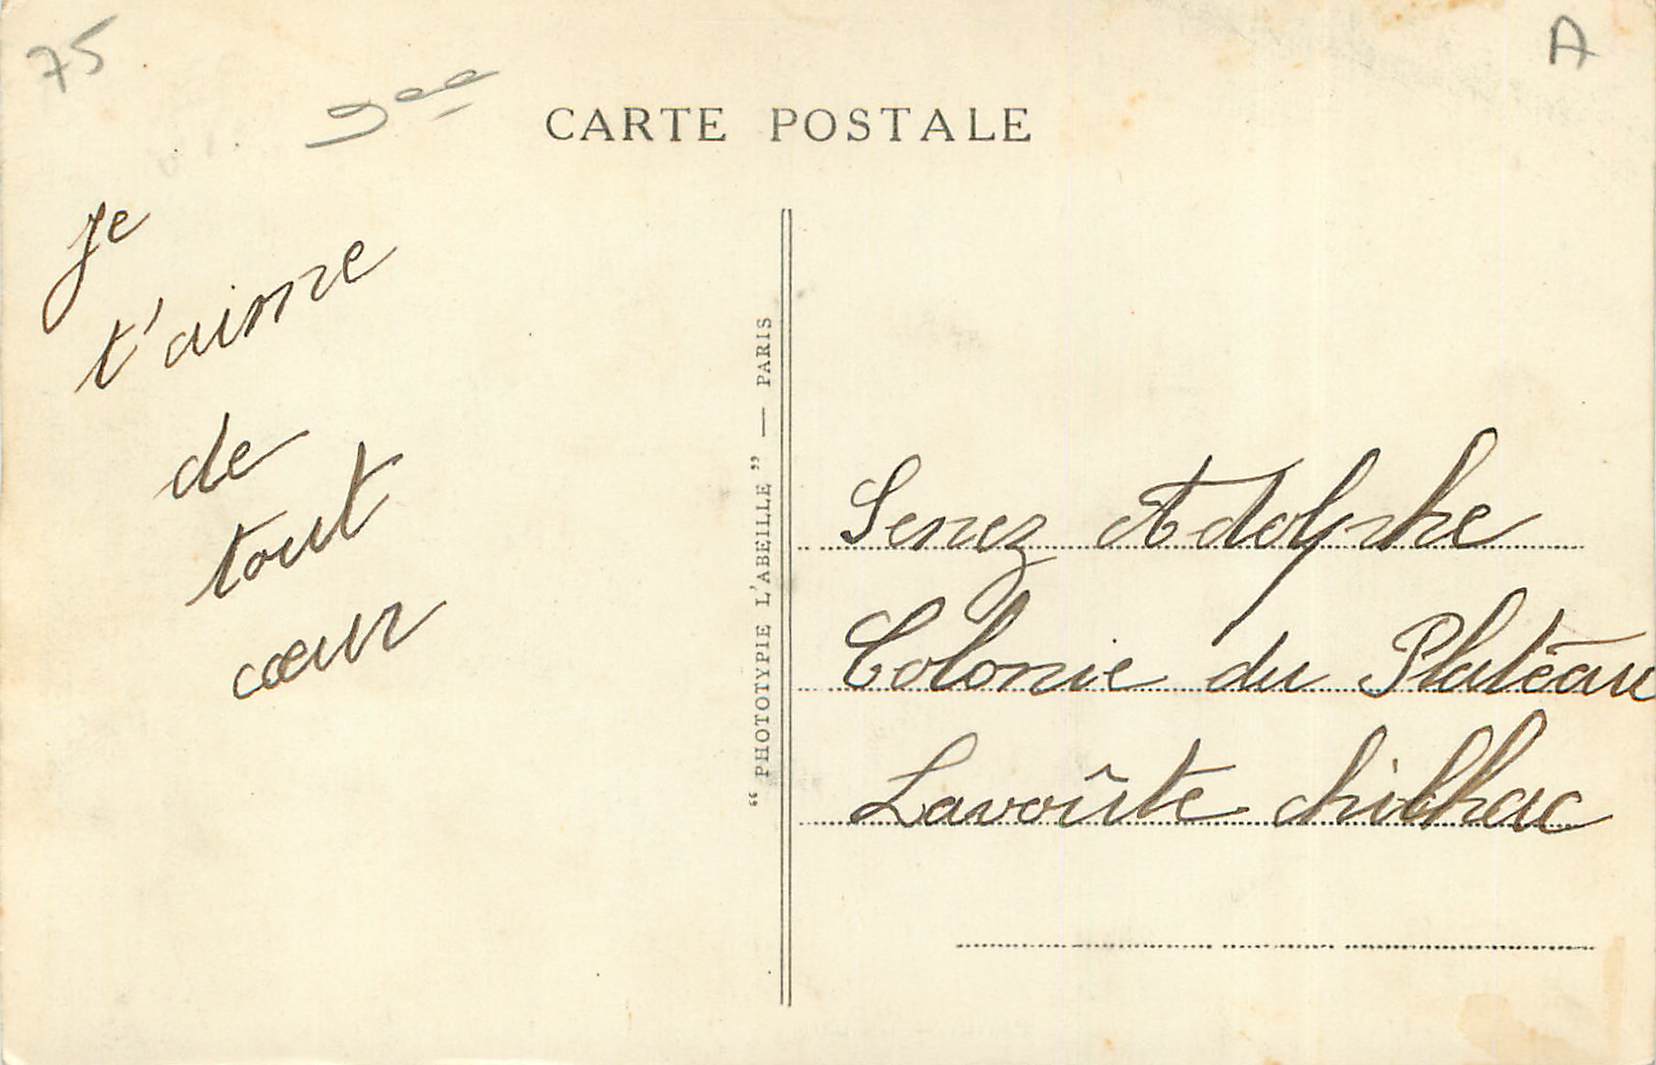 75
A
CARTE POSTALE
Je
t'aime
de
tout
cœur
"PHOTOTYPIE L'ABEILLE" — PARIS
Senez Adolphe
Colonie du Platéau
Lavoûte chilhac